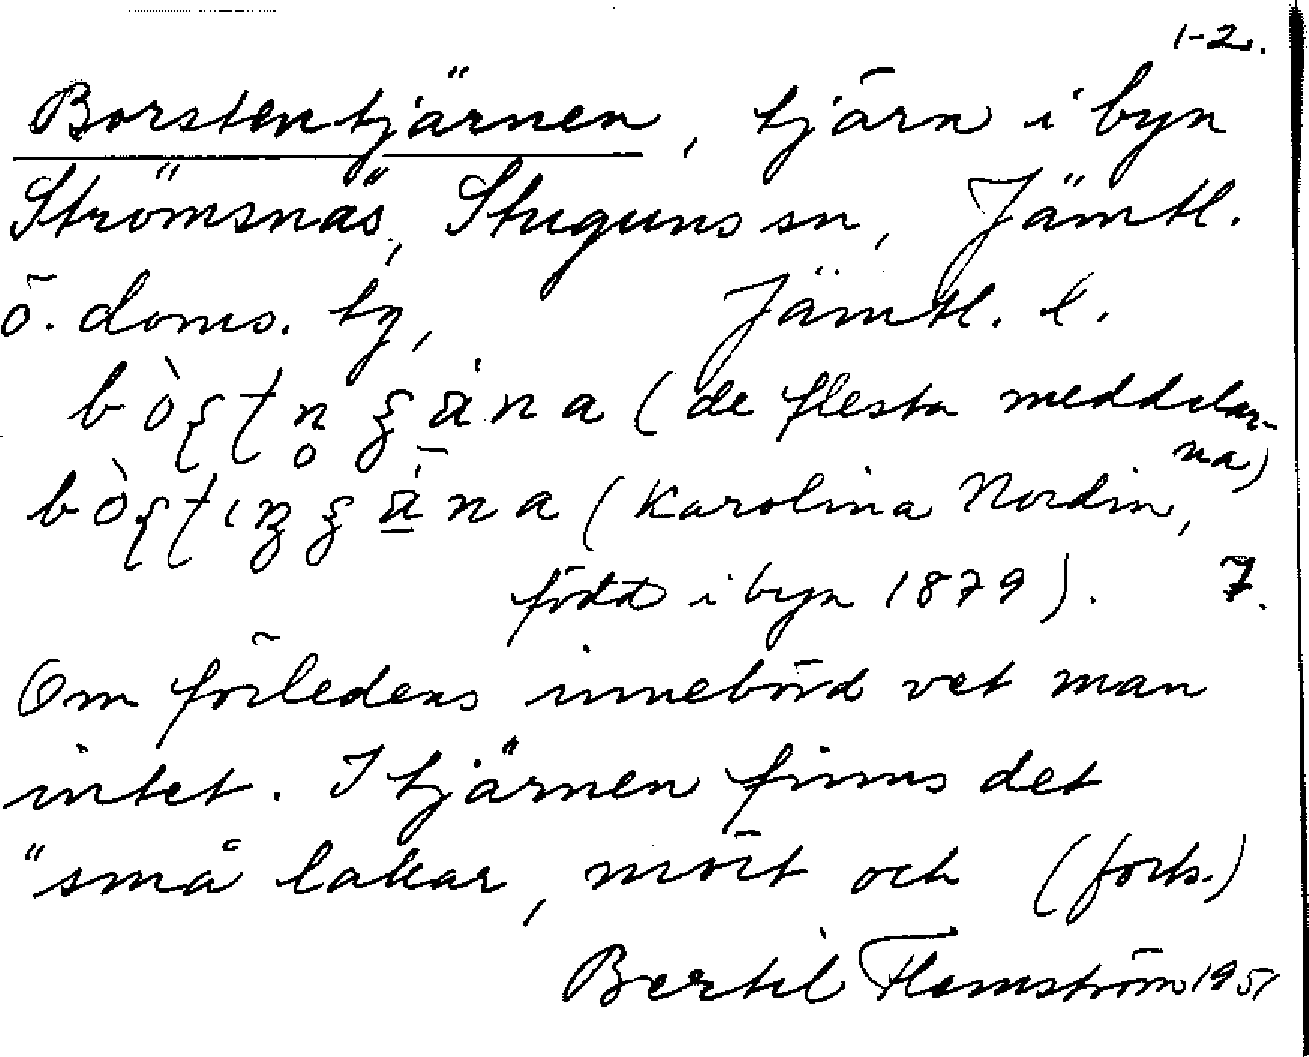 1-2.
Borstentjärnen, tjärn i byn
Strömsnäs, Stuguns sn, Jämtl.
ö. doms. tg, Jämtl. l.
(de flesta meddelar-
na)
(Karolina Nordin,
född i byn 1879). 7.
Om förledens innebörd vet man
intet. I tjärnen finns det
"små lakar, mört och (forts.)
Bertil Flemström 1951